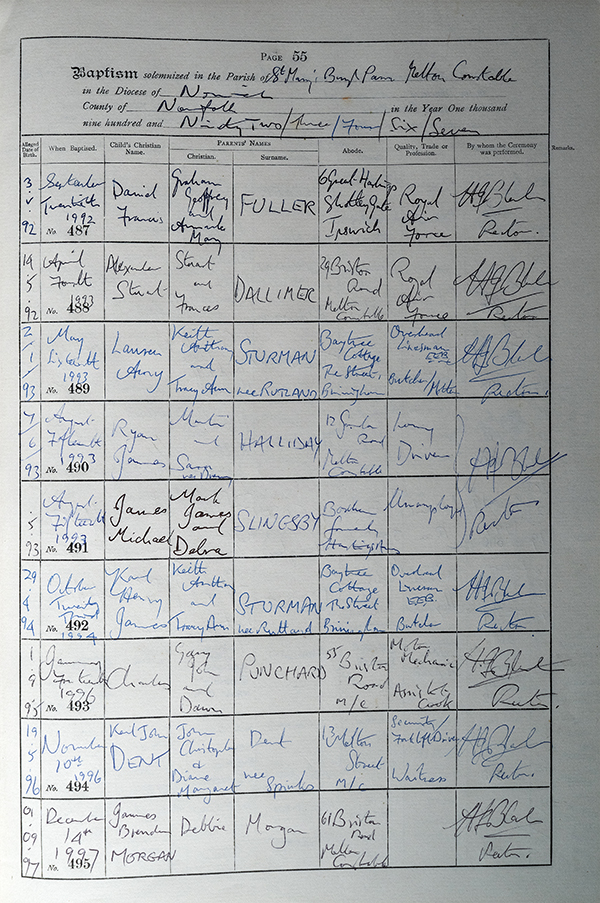 PAGE 55
Baptism solemnized in the Parish of St Mary's Burgh Parva Melton Constable
in the Diocese of Norwich
County of Norfolk in the Year One thousand
nine hundred and Ninety Two/three/Four/Six/Seven
Alleged Date of Birth. When Baptised. Child's Christian Name. PARENTS' NAMES Abode. Quality, Trade or Profession. By whom the Ceremony was performed. Remarks.
Christian. Surname.
3 September Daniel Graham 6 Great Harlings Royal
Twentieth Francis Geoffrey and FULLER Shotley Gate Air
92 1992 Mary Ipswich Force Rector.
No. 487
19 April Alexander Stuart 29 Briston Royal
5 Stuart and DALLIMER Road Air
92 1993 Frances Melton Constable Force Rector
No. 488
2 May Lauren Keith STURMAN Baytree Overhead
1 Amy and Cottage Linesman EEB
93 1993 Tracy Ann nee RUTLAND The Street, Butcher/ Rector.
No. 489 Briningham
7 August Ryan Martin HALLIDAY Road Lorry
6 Fifteenth James and Melton Driver
93 1993 Constable
No. 490
August James Mark SLINGSBY Unemployed
5 Fifteenth Michael James and Rector
93 1993 Debra
No. 491
29 October Karl Keith Baytree Overhead
4 Twenty Third Henry and STURMAN Cottage Linesman EEB
94 1994 James Tracy Ann nee Rutland The Street Butcher Rector
No. 492 Briningham
1 January Charles Gary PUNCHARD 55 Briston Motor
9 1996 John and Road Mechanic
95 Dawn M/C Assistant Cook Rector.
No. 493
19 November Karl John John Dent 13 Melton Security/
5 10th DENT Christopher & nee Street Forklift Driver
96 1996 Diane Margaret Spinks M/C Waitress Rector.
No. 494
01 December James Debbie Morgan 61 Briston
09 14th Brendan Road
97 1997 MORGAN Melton Constable Rector.
No. 495